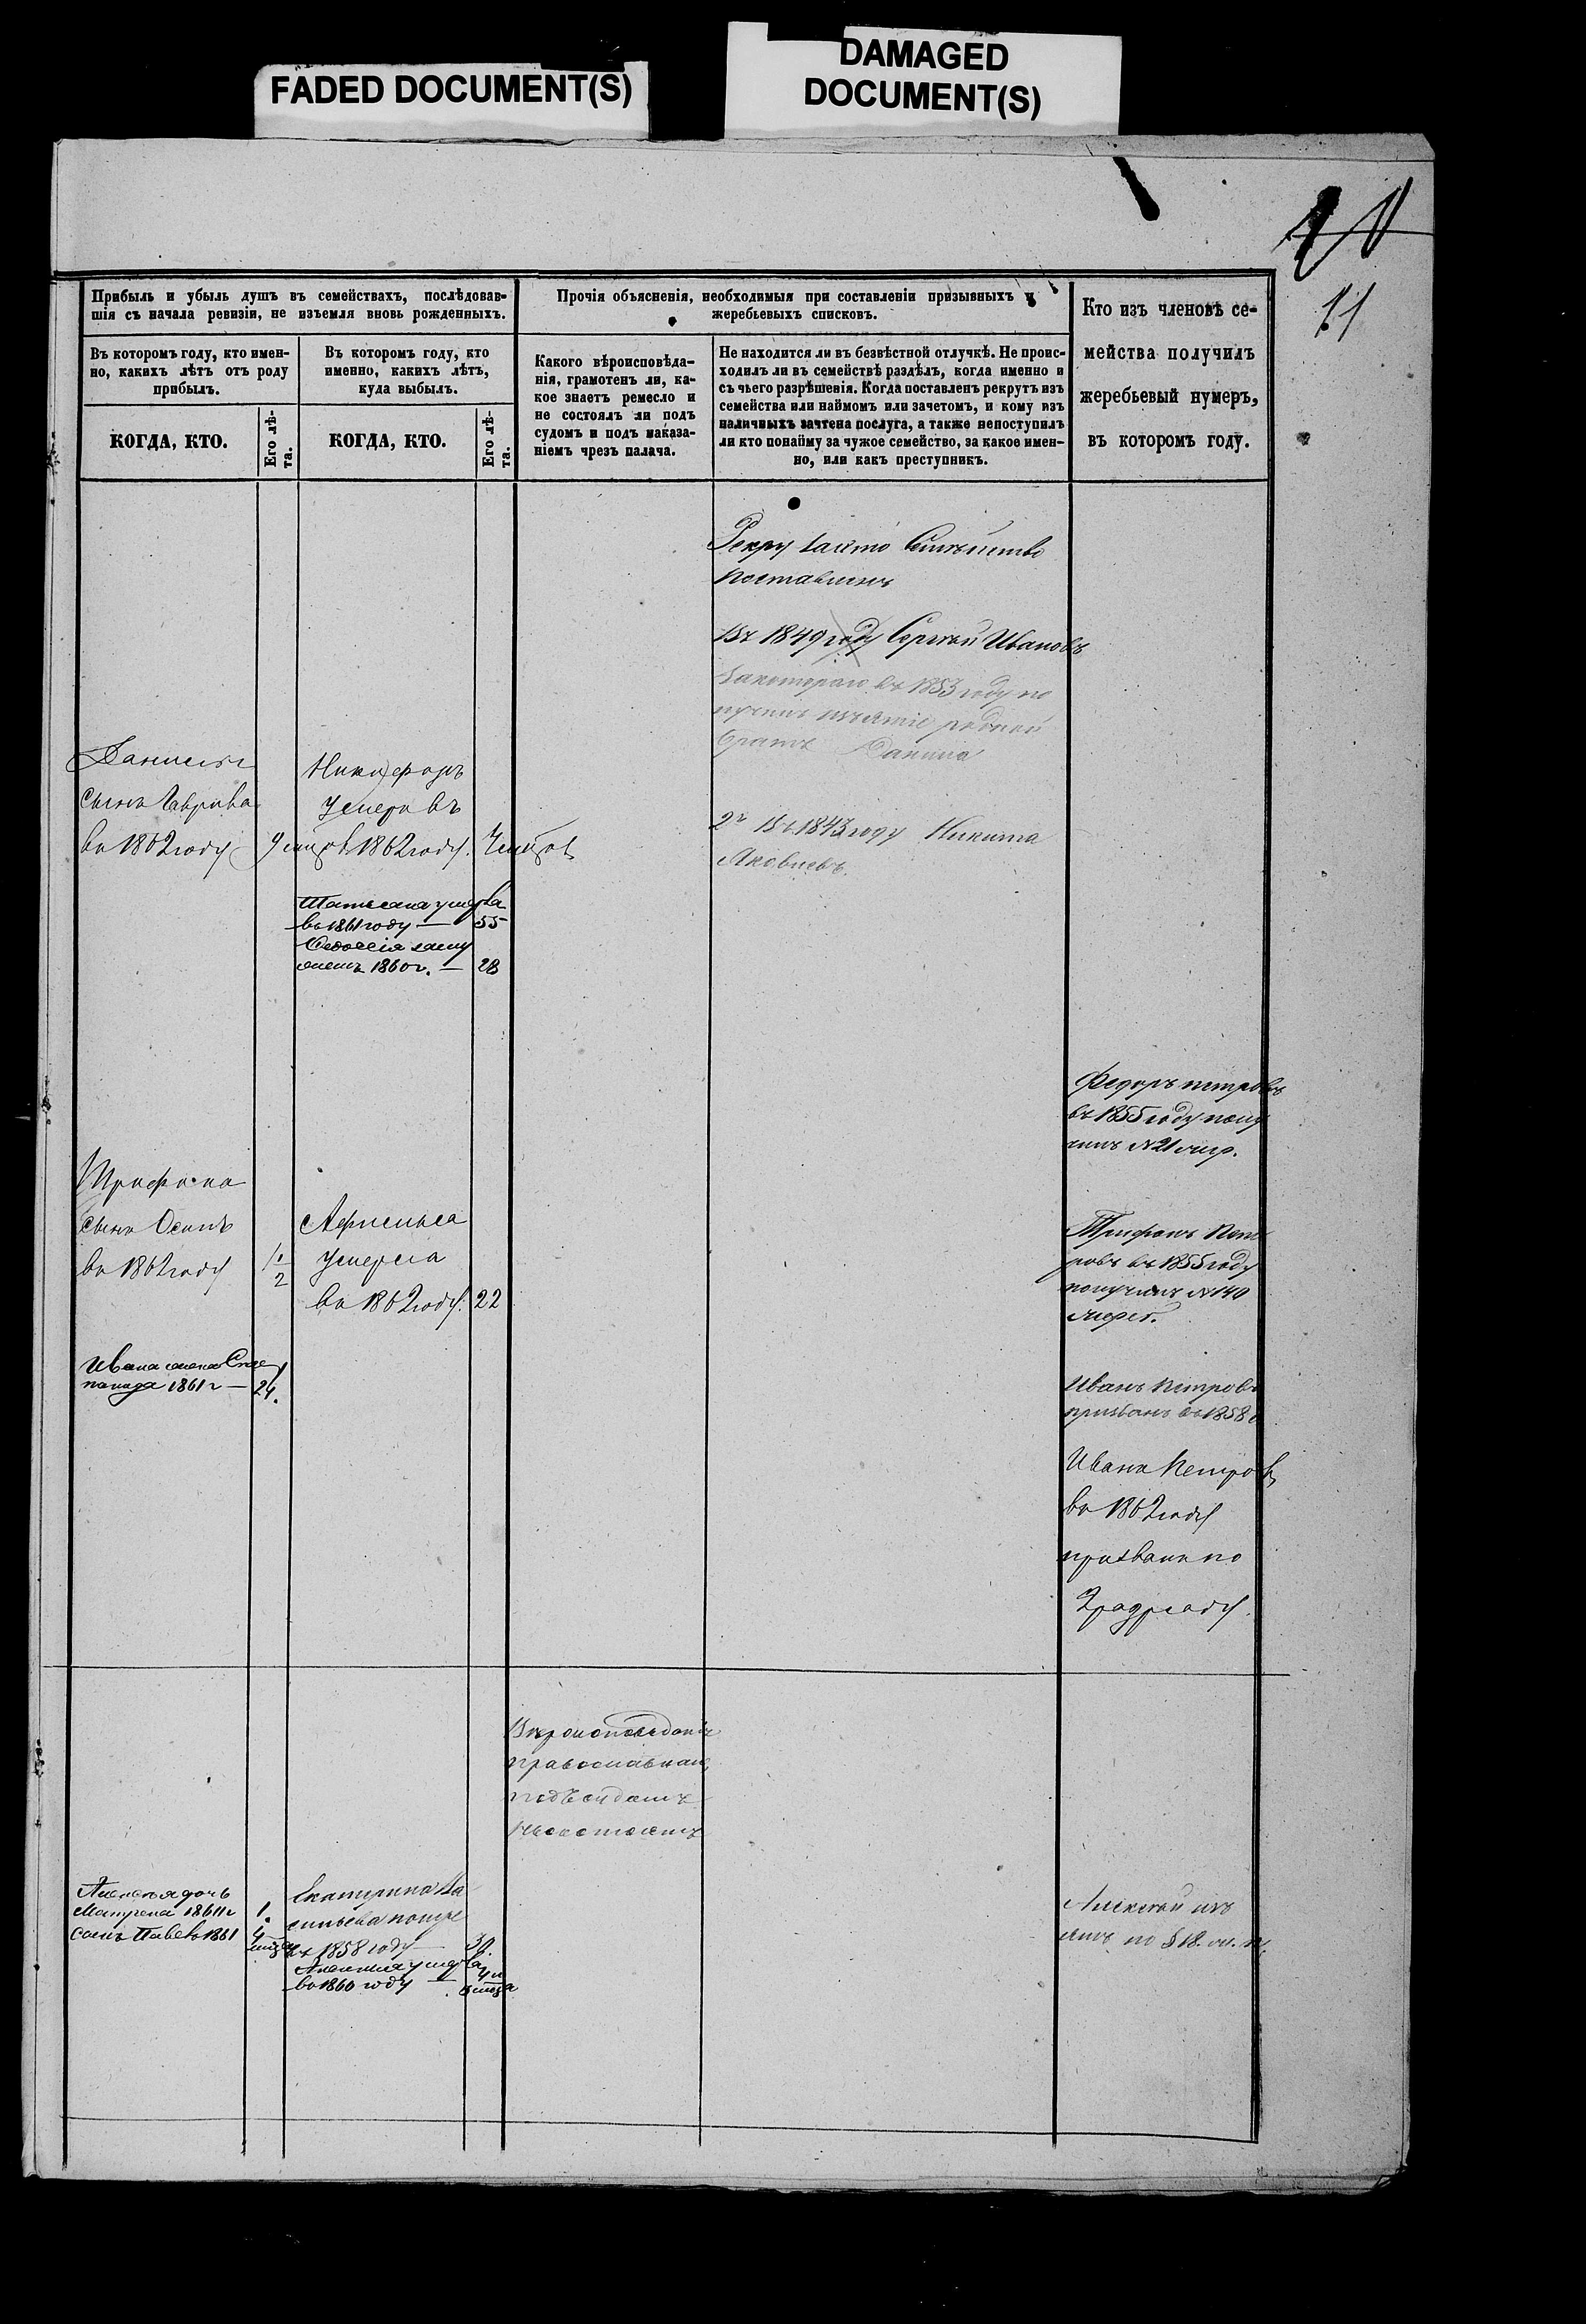 FADED DOCUMENT(S)
DAMAGED
DOCUMENT(S)
11
Прибыль и убыль душъ въ семействахъ, послѣдовав-
шія съ начала ревизіи, не изъемля вновь рожденныхъ.
Въ которомъ году, кто имен-
но, какихъ лѣтъ отъ роду
прибылъ.
Въ которомъ году, кто
именно, какихъ лѣтъ,
куда выбылъ.
КОГДА, КТО.
Его лѣ-
та.
КОГДА, КТО.
Его лѣ-
та.
Прочія объясненія, необходимыя при составленіи призывныхъ и
жеребьевыхъ списковъ.
Какого вѣроисповѣда-
нія, грамотенъ ли, ка-
кое знаетъ ремесло и
не состоялъ ли подъ
судомъ и подъ наказа-
ніемъ чрезъ палача.
Не находится ли въ безвѣстной отлучкѣ. Не проис-
ходилъ ли въ семействѣ раздѣлъ, когда именно и
съ чьего разрѣшенія. Когда поставленъ рекрутъ изъ
семейства или наймомъ или зачетомъ, и кому изъ
наличныхъ зачтена послуга, а также непоступилъ
ли кто понайму за чужое семейство, за какое имен-
но, или какъ преступникъ.
Кто изъ членовъ се-
мейства получилъ
жеребьевый нумеръ,
въ которомъ году.
Семѣйство
поставленъ
Въ 1849 году Сергѣй Ивановъ
Закотораго въ 1853 году по
лучилъ изъятіе родной
братъ Данила
2й Въ 1843 году Никита
Яковлевъ.
Данилы
сынъ Гаврила
въ 1862 году
Никифоръ
умеръ въ
1862 году.
Татьяна умерла
въ 1861 году — 55
Федосія заму
1860 г. — 28
Федоръ петровъ
въ 1855 году полу
чилъ №21 жер.
Трифона
сынъ Осипъ
въ 1862 году
1/2
Афимья
умерла
въ 1862 году. 22
Трифонъ Пет
ровъ въ 1855 году
получилъ №140
жереб.
Ивана жена Сте
панида 1861 г — 24.
Иванъ Петровъ
призванъ въ 1858
Иванъ Петровъ
въ 1862 году
призванъ по
2 разряду.
Вѣроисповѣданія
православнаго,
подъ судомъ
несостоятъ
Алексѣя дочь
Матрена 1861 г 1.
сынъ Павелъ 1861
Екатерина Ва
сильева
въ 1858 году
умерла
въ 1860 году
Алексѣй изъ
ятъ по § 18.